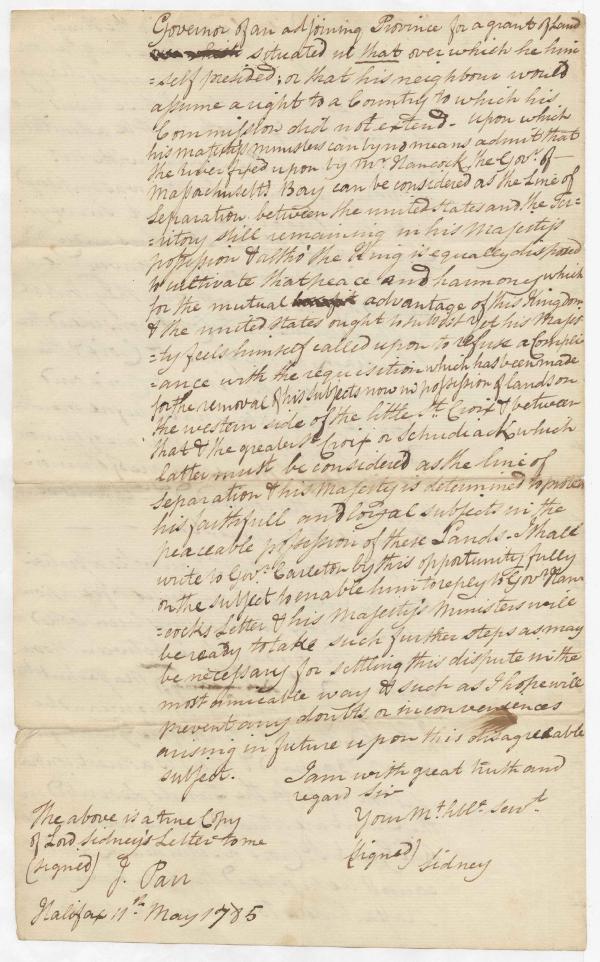 Governor of an adjoining Province for a grant of Land
situated in that over which he him
=self presided; or that his neighbour would
assume a right to a Country to which his
Commission did not extend - upon which
his majestys ministers can by no means admit that
the river fixed upon by Mr. Hancock, the Govr. of
Massachusetts Bay can be considered as the Line of
Separation between the united States and the Ter=
=ritory still remaining in his Majestys
possession & altho' the King is equally disposed
to cultivate that peace and harmony which
for the mutual advantage of this Kingdom
& the united States ought to subsist yet his Majes
=ty feels himself called upon to refuse a compli
=ance with the requisition which has been made
for the removal of his subjects now in possession of lands on
the western side of the little St. Croix & between
that & the greater St. Croix or Schudiack which
latter must be considered as the line of
separation & his Majesty is determined to protect
his faithfull and loyal subjects in the
peaceable possession of these Lands. I shall
write to Govr. Carleton by this opportunity fully
on the subject to enable him to reply to Govr. Han
=cocks Letter & his Majestys Ministers will
be ready to take such further steps as may
be necessary for settling this dispute in the
most amicable way & such as I hope will
prevent any doubts or inconveniences
arising in future upon this disagreeable
subject.
I am with great truth and
regard Sir
Your Mt. hble. Servt.
(signed) Sidney
The above is a true Copy
of Lord Sidney's Letter to me
(signed) J. Parr
Halifax 11th. May 1785